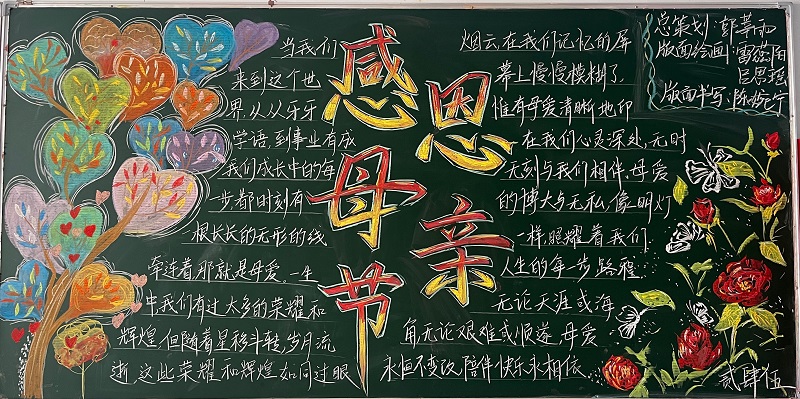 感恩母亲节
当我们
来到这个世
界，从从牙牙
学语，到事业有成
我们成长中的每
一步都时刻有
一根长长的无形的线
牵连着那就是母爱。一生
中我们有过太多的荣耀和
辉煌，但随着星移斗转，岁月流
逝，这些荣耀和辉煌如同过眼
烟云，在我们记忆的屏
幕上慢慢模糊了，
惟有母爱清晰地印
在我们心灵深处，无时
无刻与我们相伴，母爱
的博大与无私，像明灯
一样照耀着我们
人生的每一步路程
无论天涯或海
角，无论艰难或顺遂，母爱
永恒不变改，陪伴快乐永相依。
总策划：郭菶雨
版面绘画：雷蕊阳
吕思瑶
版面书写：陈婉宁
贰肆伍